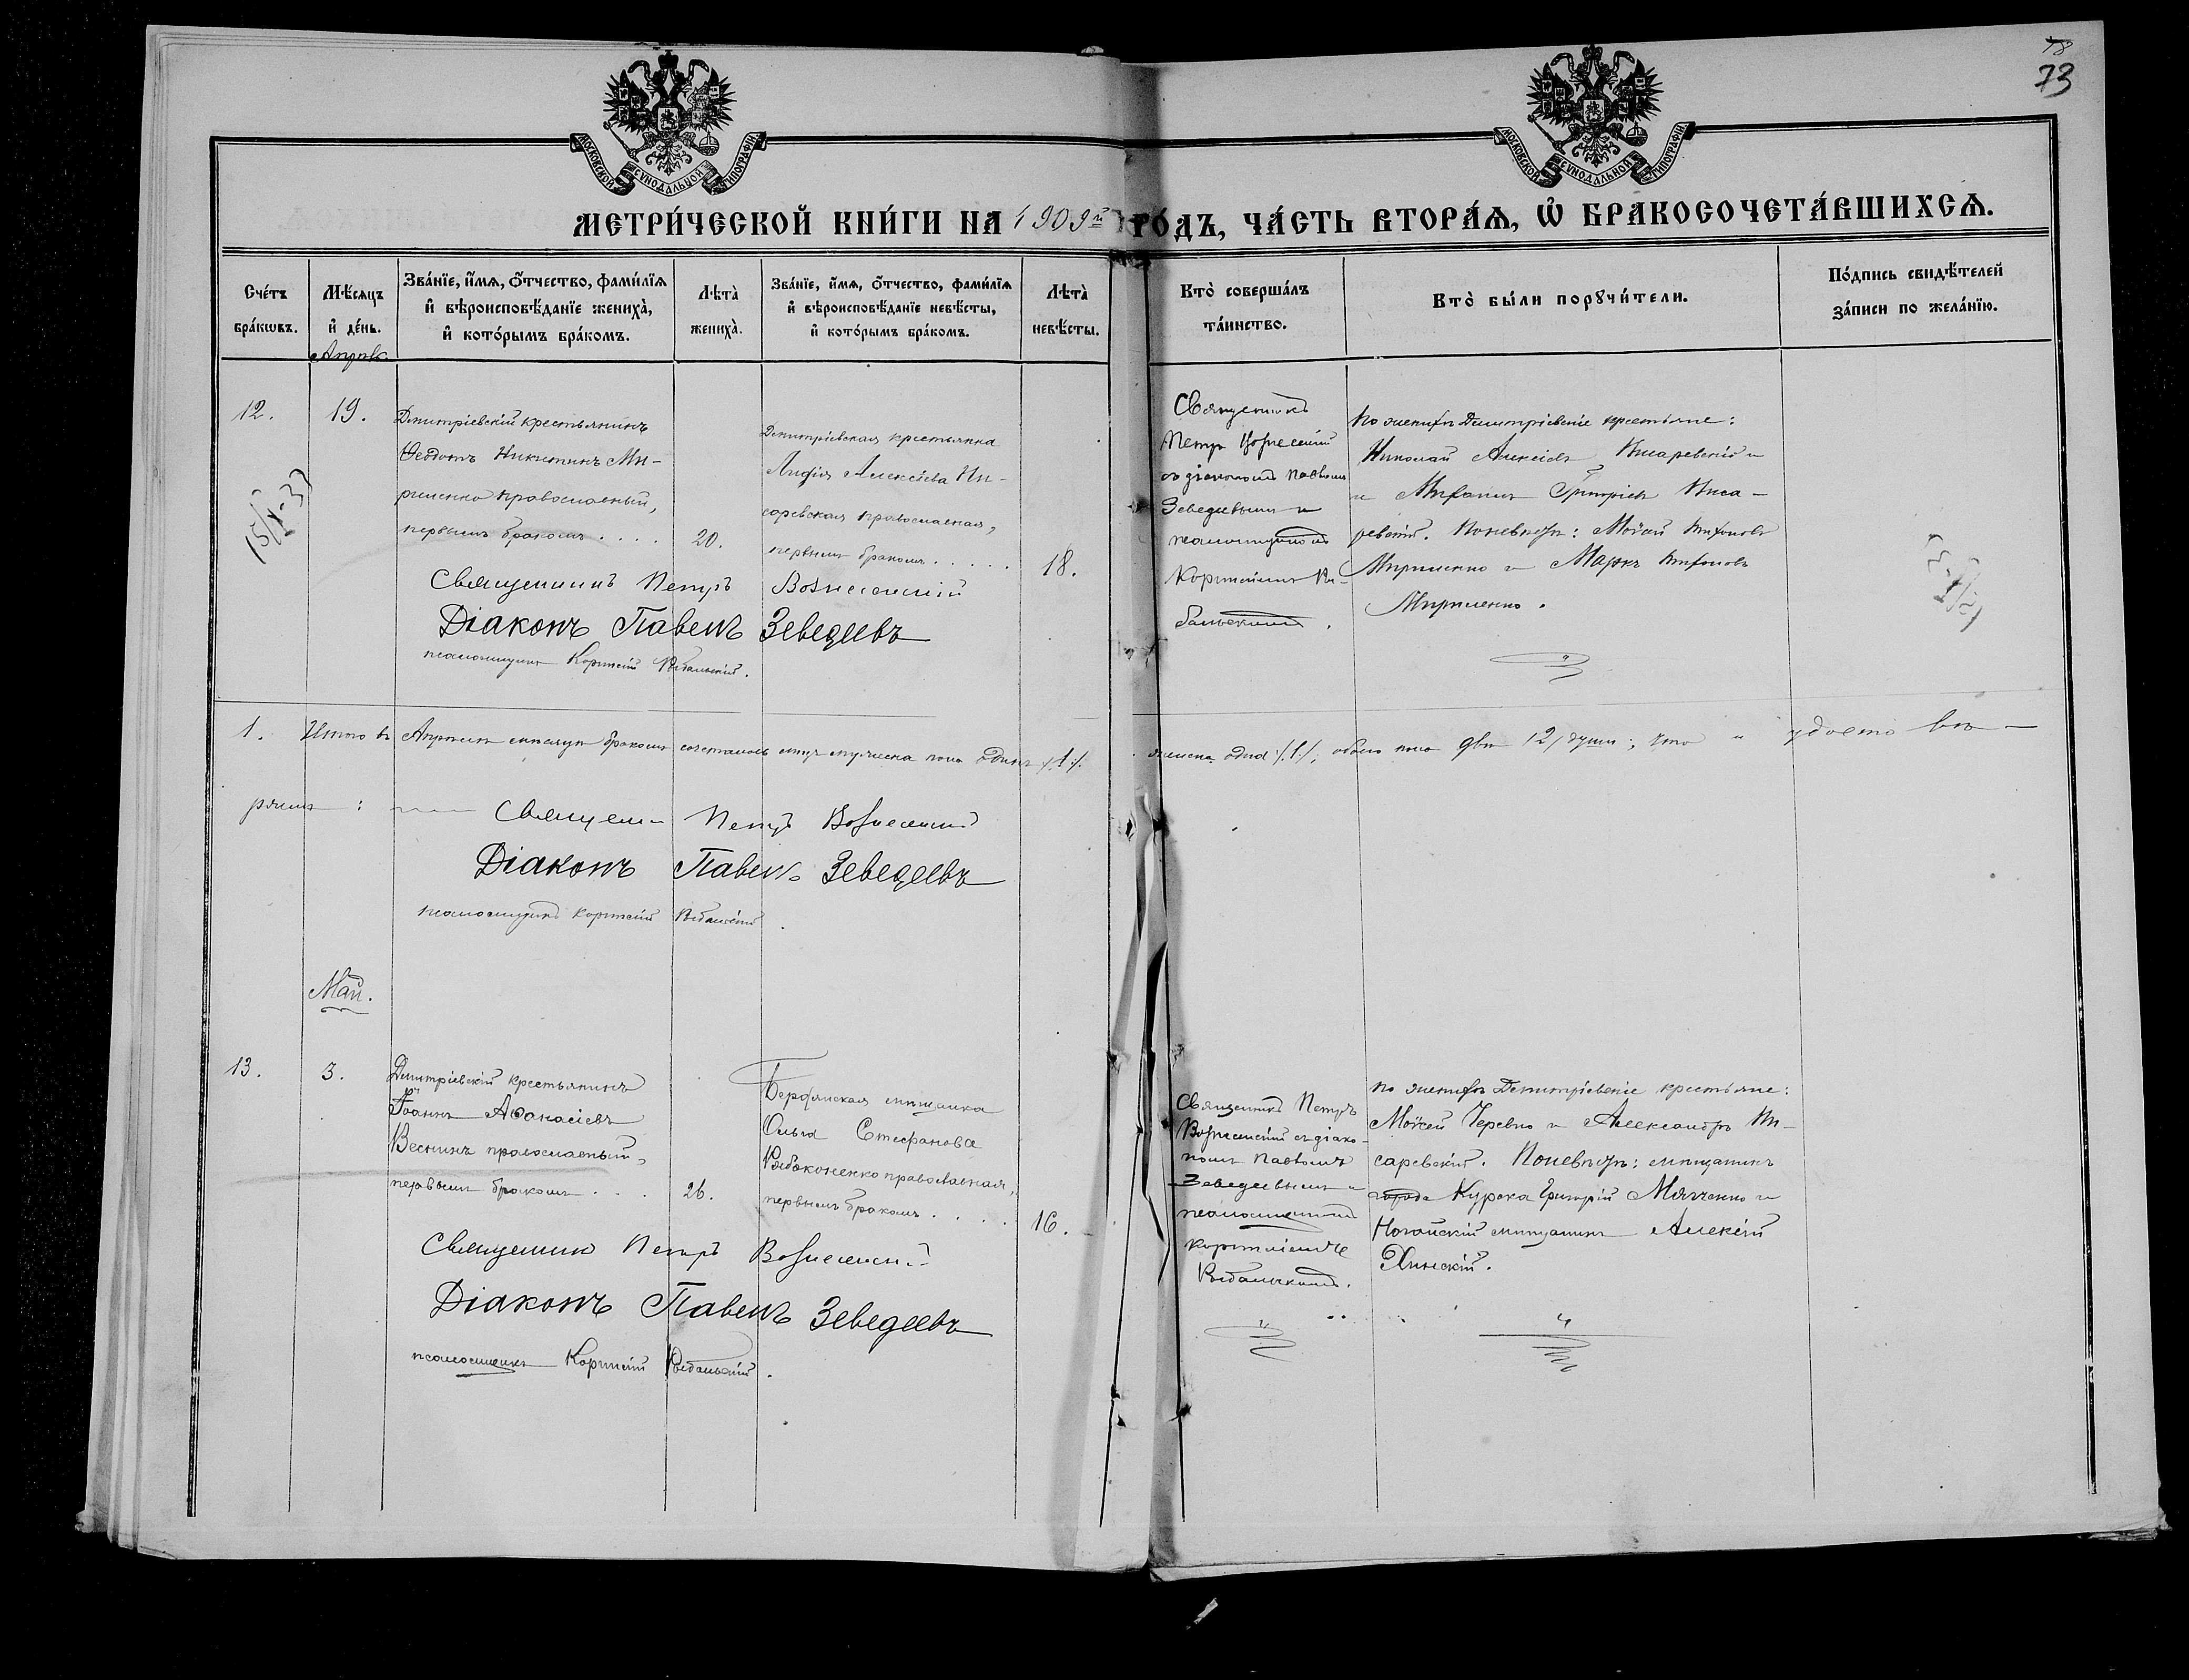 78
73
МОСКОВСКОЙ СѴНОДАЛЬНОЙ ТИПОГРАФІИ
МОСКОВСКОЙ СѴНОДАЛЬНОЙ ТИПОГРАФІИ
МЕТРИ́ЧЕСКОЙ КНИ́ГИ НА 1909й ГО́ДЪ, ЧА́СТЬ ВТОРА́Ѧ, Ѿ БРАКОСОЧЕТА́ВШИХСѦ.
Сче́тъ
бра́кѡвъ.
Мѣ́сѧцъ
и҆ де́нь.
Зва́нїе, и҆́мѧ, ѻ҆́тчество, фами́лїѧ
и҆ вѣроисповѣ́данїе жениха̀,
и҆ кото́рымъ бра́комъ.
Лѣта̀
жениха̀.
Зва́нїе, и҆́мѧ, ѻ҆́тчество, фами́лїѧ
и҆ вѣроисповѣ́данїе невѣ́сты,
и҆ кото́рымъ бра́комъ.
Лѣта̀
невѣ́сты.
Кто̀ соверша́лъ
та́инство.
Кто̀ бы́ли порꙋчи́тели.
По́дпись свидѣ́телей
за́писи по жела́нїю.
Апрѣль
12.
19.
Димитріевскій крестьянинъ
Ѳеодотъ Никитинъ Ми-
рименко православный,
первымъ бракомъ . . . .
20.
Димитріевская крестьянка
Лидія Алексѣева Пи-
саревская православная,
первымъ бракомъ . . . . .
18.
Священникъ
Петръ Вознесенскій
съ діакономъ Павломъ
Зеведеевымъ и
псаломщикомъ
Корниліемъ Ры-
бальскимъ.
По женихѣ Димитріевскіе крестьяне:
Николай Алексіевъ Писаревскій и
Григоріевъ Писа-
ревскій. По невѣстѣ: Мойсей Тихоновъ
Мирименко и Маркъ Тихоновъ
Мирименко.
Священникъ Петръ Вознесенскій
Діаконъ Павелъ Зеведеевъ
псаломщикъ Корнилій Рыбальскій.
1. Итого въ Апрѣлѣ мѣсяцѣ бракомъ сочеталось муж. пола одинъ /.1./.
женска одна /.1./, обоего пола двѣ /2/ души; что и удостовѣ-
ряемъ:
Священ. Петръ Вознесенскій
Діаконъ Павелъ Зеведеевъ
псаломщикъ Корнилій Рыбальскій.
Май.
13.
3.
Димитріевскій крестьянинъ
Іоаннъ Аѳанасіевъ
Веснинъ православный,
первымъ бракомъ . . .
26.
Бердянская мѣщанка
Ольга Стефанова
Рыбоконенко православная,
первымъ бракомъ . . . .
16.
Священникъ Петръ
Вознесенскій съ діако-
номъ Павломъ
Зеведеевымъ и
псаломщикомъ
Корниліемъ
Рыбальскимъ.
По женихѣ Димитріевскіе крестьяне:
Мойсей Черевко и Александръ Пи-
саревскій. По невѣстѣ: мѣщанинъ
города Курска Григорій Мягченко и
Ногайскій мѣщанинъ Алексій
Янскій.
Священникъ Петръ Вознесенскій
Діаконъ Павелъ Зеведеевъ
псаломщикъ Корнилій Рыбальскій.